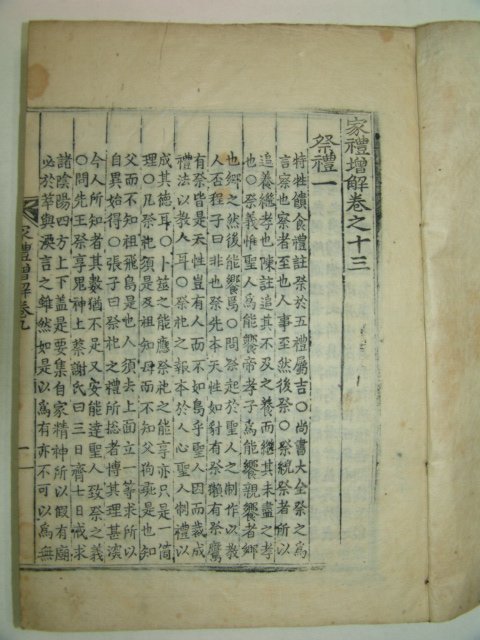 家禮增解卷之十三
祭禮一
特牲饋食禮註祭於五禮屬吉○尚書大全祭之
言察也察者至也人事至然後祭○祭統祭者所以
追養繼孝也陳註追其不及之養而繼其未盡之孝
也○祭義惟聖人爲能饗帝孝子爲能饗親饗者鄕
也鄕之然後能饗焉○問祭起於聖人之制作以教
人否程子曰非也祭先本天性如豺有祭獺有祭鷹
有祭皆是天性豈有人而不如鳥乎聖人因而裁成
禮法以教人耳○祭祀之報本於人心聖人制禮以
成其德耳○卜筮之能應祭祀之能享亦只是一箇
理○凡祭祀須是及祖知母而不知父狗彘是也知
父而不知祖飛鳥是也人須去上面立一等求所以
自異始得○張子曰祭祀之禮所捴者博其理甚深
今人所知者其數猶不足又安能達聖人致祭之義
○問先王祭享鬼神上蔡謝氏曰三日齊七日戒求
諸陰陽四方上下盖是要集自家精神所以假有廟
必於萃與渙言之雖然如是以爲有亦不可以爲無
家禮增解卷九
一